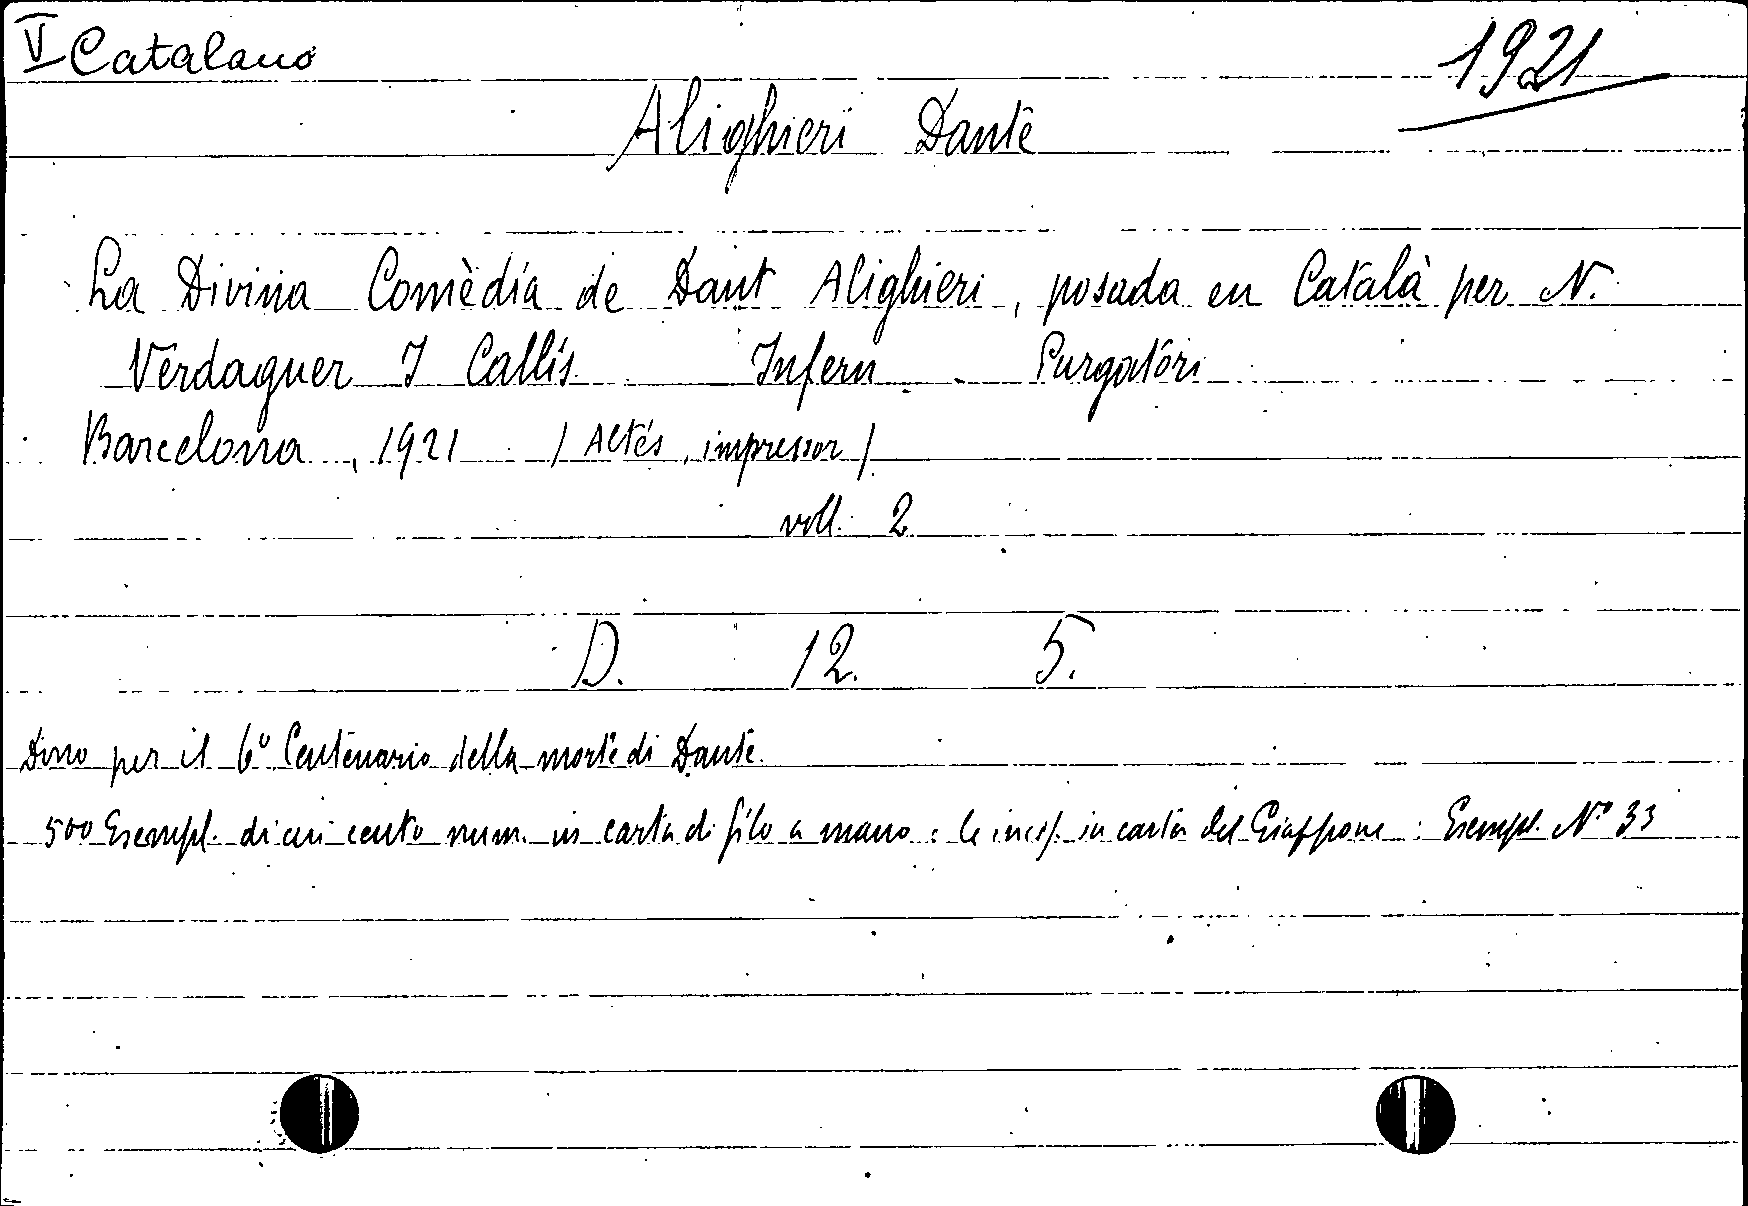 V Catalano
1921
Alighieri Dante
La Divina Comèdia de Dant Alighieri, posada en Català per N.
Verdaguer I Callís. Infern. Purgatòri
Barcelona, 1921 / Altés, impressor /
voll. 2
D. 12. 5.
Dono per il 6º Centenario della morte di Dante.
500 Esempl. di cui cento num. in carta di filo a mano: le incis. in carta del Giappone: Esempl. Nº 33